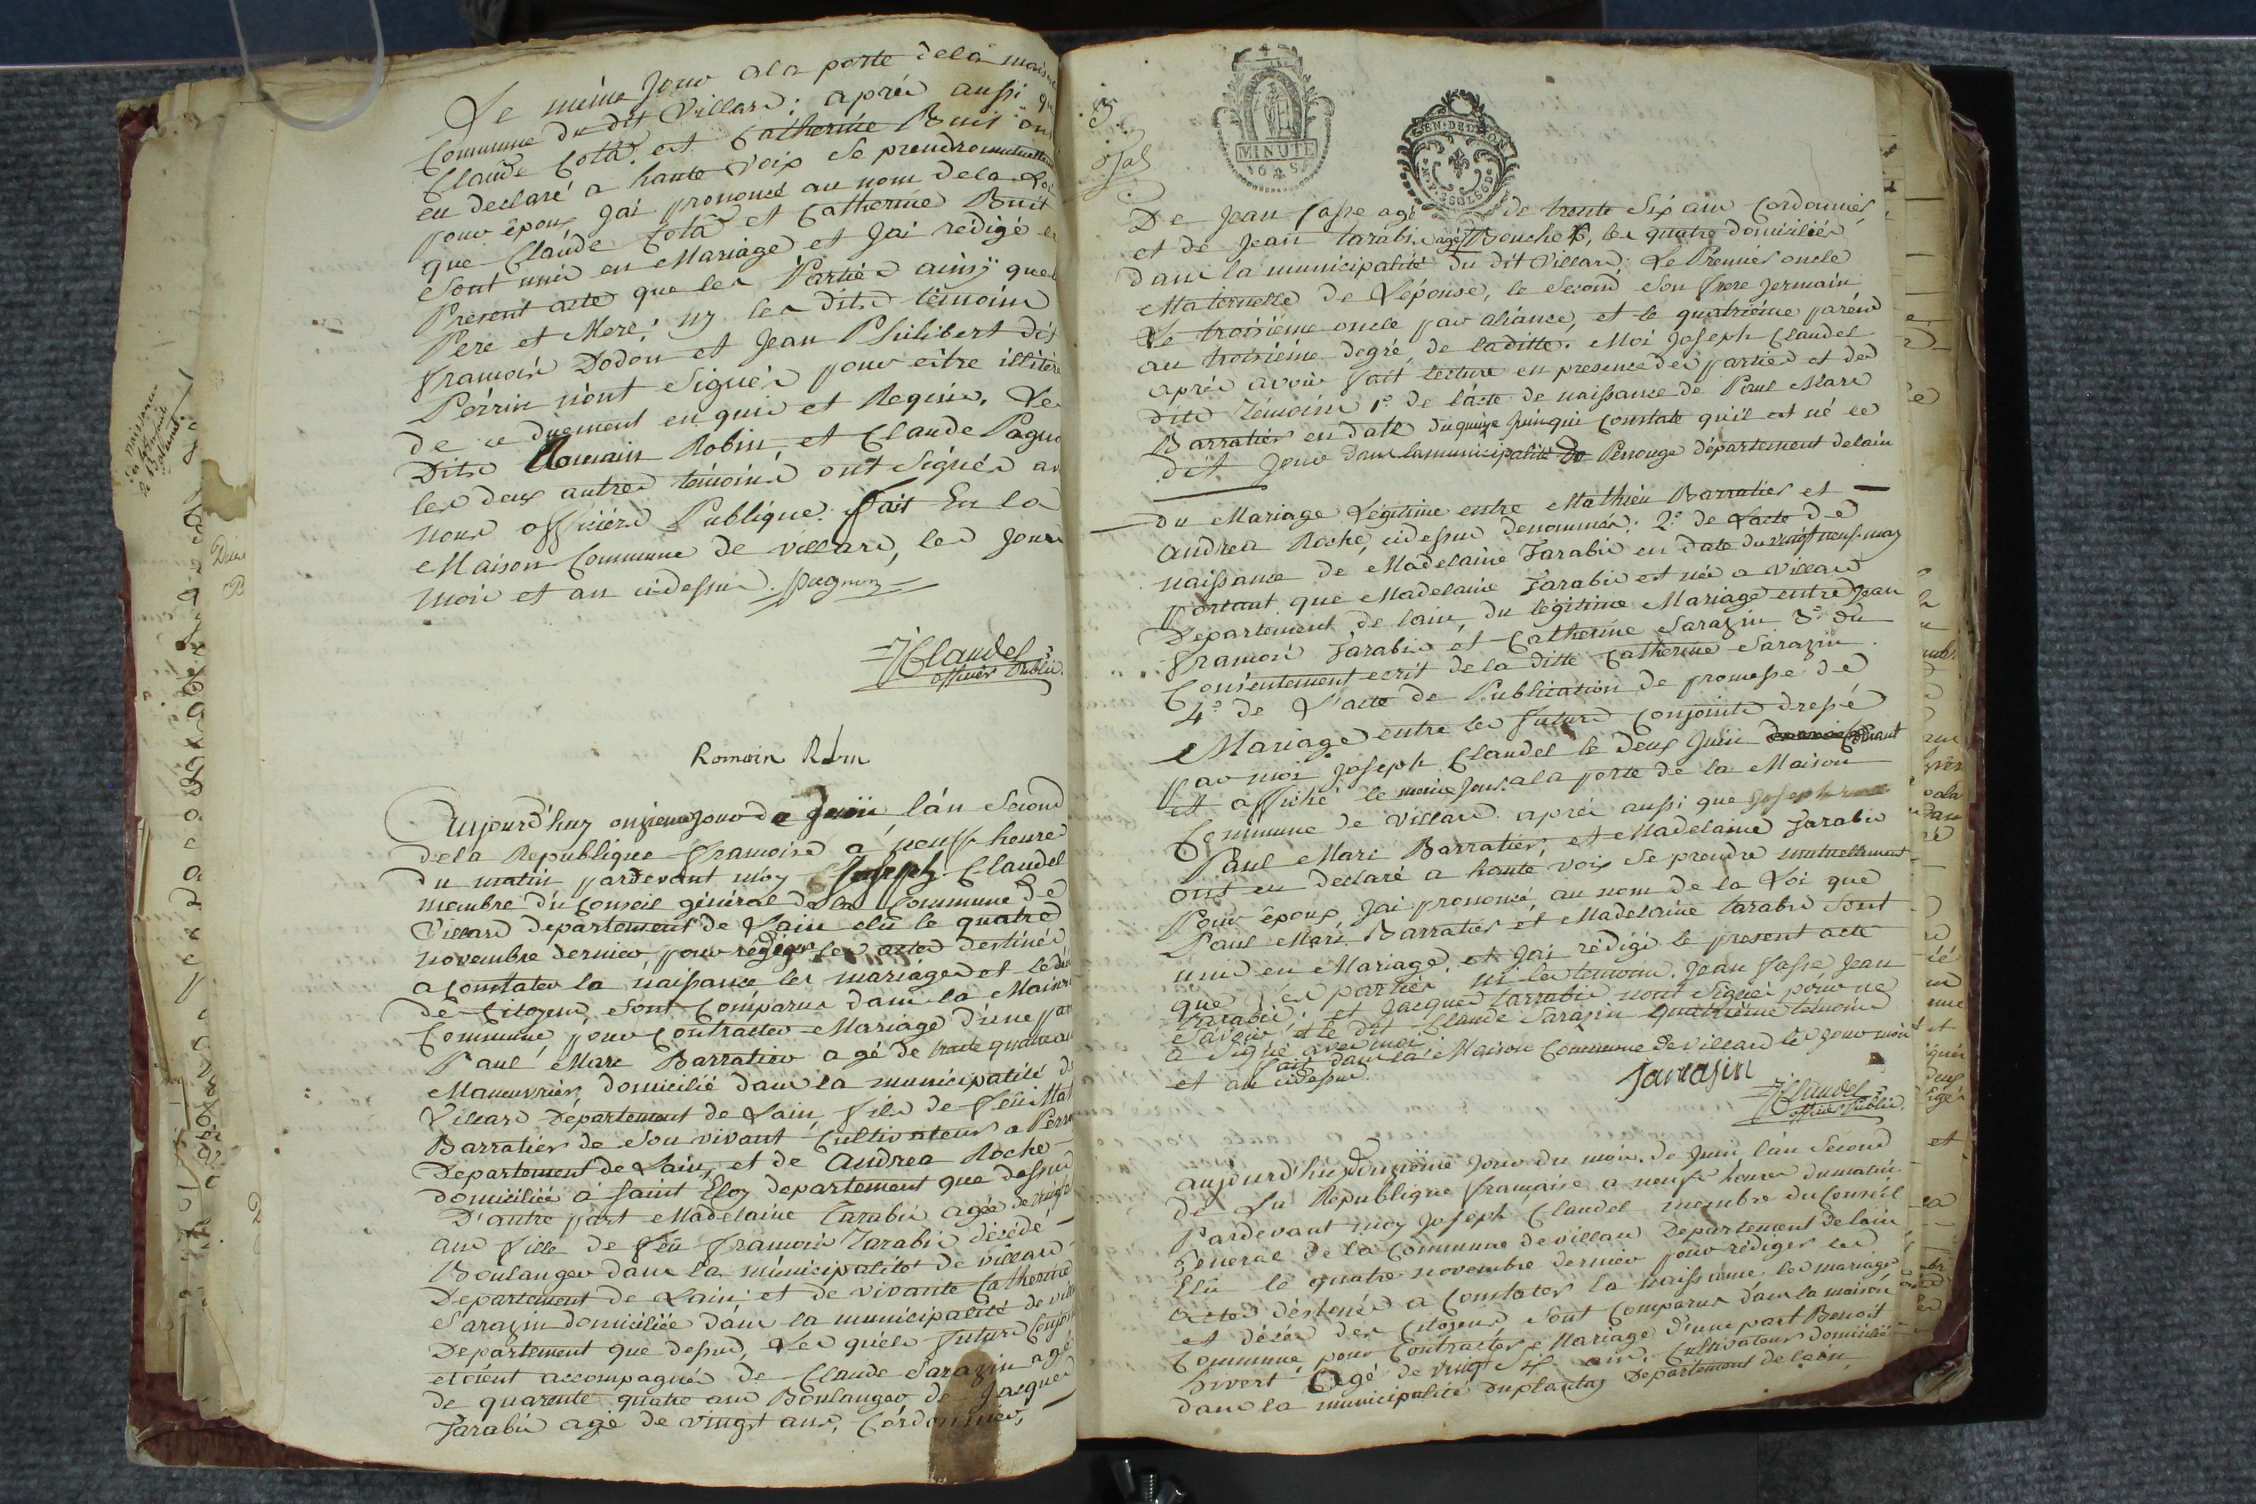 Le même Jour a la porte dela maison
Commune du dit Villars: aprés aussi que
Claude Cotâ et Catherine Buit ont
eu declaré a haute voix se prendre mutuellement
pour époux Jai prononcé au nom de la Loi
que Claude Cotâ et Catherine Buit
sont unis en Mariage et Jai redigé le
Present acte que les Parties ainsÿ que
Pere et Mere; ny les dits témoins
François Dodon et Jean Philibert dit
Pérrin n'ont Signés pour être illitéré
de ce duement enquis et Requis. Les
Dits Romain Robin, et Claude Pagnon
les deux autres témoins ont Signés avec
nous officiérs Publique. fait En la
Maison Commune de villars, les Jour
mois et an cidessus. Pagnon
JClaudel
officier Public.
Romain Robin
Aujourd'huy onzieme Jour de Juin l'án Second
dela Republique Francoise a neuff heure
du matin pardevant moy Joseph Claudel
membre du Conseil général de la Commune de
Villars département de Lain elû le quatre
novembre dernier pour rediger les actes destinés
a constater la náissance les mariages et le décés
de Citoyens sont Comparus dans la Maison
Commune pour Contracter Mariage d'une part
Paul Marc Barratier agé de trente quatre ans
Maneuvrier, domicilié dans la municipalité de
Villars Departement de Lain, fils de feû Mathieu
Barratier de son vivant Cultivateur a Perrouge
Departement de Lain, et de Andrea Roche
domiciliée á Saint Eloy departement que dessus
D'autre part Madelaine Tarabie agée de vingt
ans fille de feû François Tarabie décédé
Boulanger dans la municipalité de villars
Departement de Lain; et de vivante Catherine
Sarazin domiciliée dans la municipalité de villars
Departement que dessus, Les quels futurs Conjoints
etoient accompagnés de Claude Sarazin agé
de quarente quatre ans Boulanger de Jacques
Tarabie agé de vingt ans, Cordonnier,
3.
MINUTE
GEN. DE DIJON
De Jean fasse agé de trente Six ans Cordonnier
et de Jean tarabie agé Boucher, les quatre domiciliés
dans la municipalité du dit Villars: Le Premier oncle
Maternelle de L'épouse, le second son frere Jermain
Le troisiéme oncle par aliance, et le quatriéme parént
au troisiéme degré, de laditte. Moi Joseph Claudel
aprés avoir fait lecture en presence des parties et des
dits Témoins 1º de l'acte de naissance de Paul Marc
Barratier en date du quinze Juin qui Constate qu'il est né le
dit Jour dans la municipalité de Perrouge département de lain
du Mariage Légitime entre Mathieu Barratier et
Andrea Roche, cidessus denommés: 2º de Lacte de
naissance de Madelaine Tarabie en date du vingt neuf may
portant que Madelaine Tarabie est née a Villars
Departement de lain, du légitime Mariage entre Jean
François Tarabie et Catherine Sarazin 3º du
Consentement ecrit de la ditte Catherine Sarazin.
4º de L'acte de Publication de promesse de
Mariage entre les futurs Conjoints dressé
par moi Joseph Claudel le deux Juin Courant
et affiché le même Jour a la porte de la Maison
Commune de Villars aprés aussi que
Paul Marc Barratier, et Madelaine Tarabie
ont eu declaré a haute voix se prendre mutuellement
Pour époux, Jai prononcé, au nom de la Loi que
Paul Marc Barratier et Madelaine tarabie sont
unis en Mariage, et Jai rédigé le present acte
que les parties ni les temoins. Jean fasse Jean
tarabie; et Jacques tarrabie nont Signés pour ne
Savoir et le dit Claude Sarazin quatriéme témoins
a Signé avec moi
fait dans la Maison Commune de Villars les jour mois
et an cidessus.
Sarrasin
JClaudel
officier Public.
aujourd'huy douziéme Jour du mois de Juin l'an Second
de La Republique française a neuf heures du matin
Pardevant moy Joseph Claudel membre du Conseil
General de la Commune de villars Departement de lain
Elû le quatre novembre dernier pour rédiger les
actes déstinés a Constater la naissance les mariages
et décés des Citoyens sont Comparus dans la maison
Commune pour Contracter Mariage d'une part Benoit
hivert Agé de vingt Six ans, Cultivateur domicilié
dans la municipalité du plantay Departement de lain